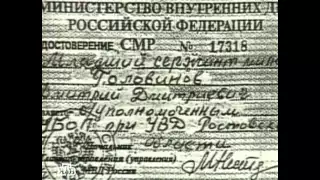 МИНИСТЕРСТВО ВНУТРЕННИХ Д
РОССИЙСКОЙ ФЕДЕРАЦИИ
УДОСТОВЕРЕНИЕ СМР № 17318
Младший сержант мили
Головинов
Дмитрий Дмитриевич
о/уполномоченным
при УВД Ростовск
области
Начальник
управления (управления)
МВД России
НТВ